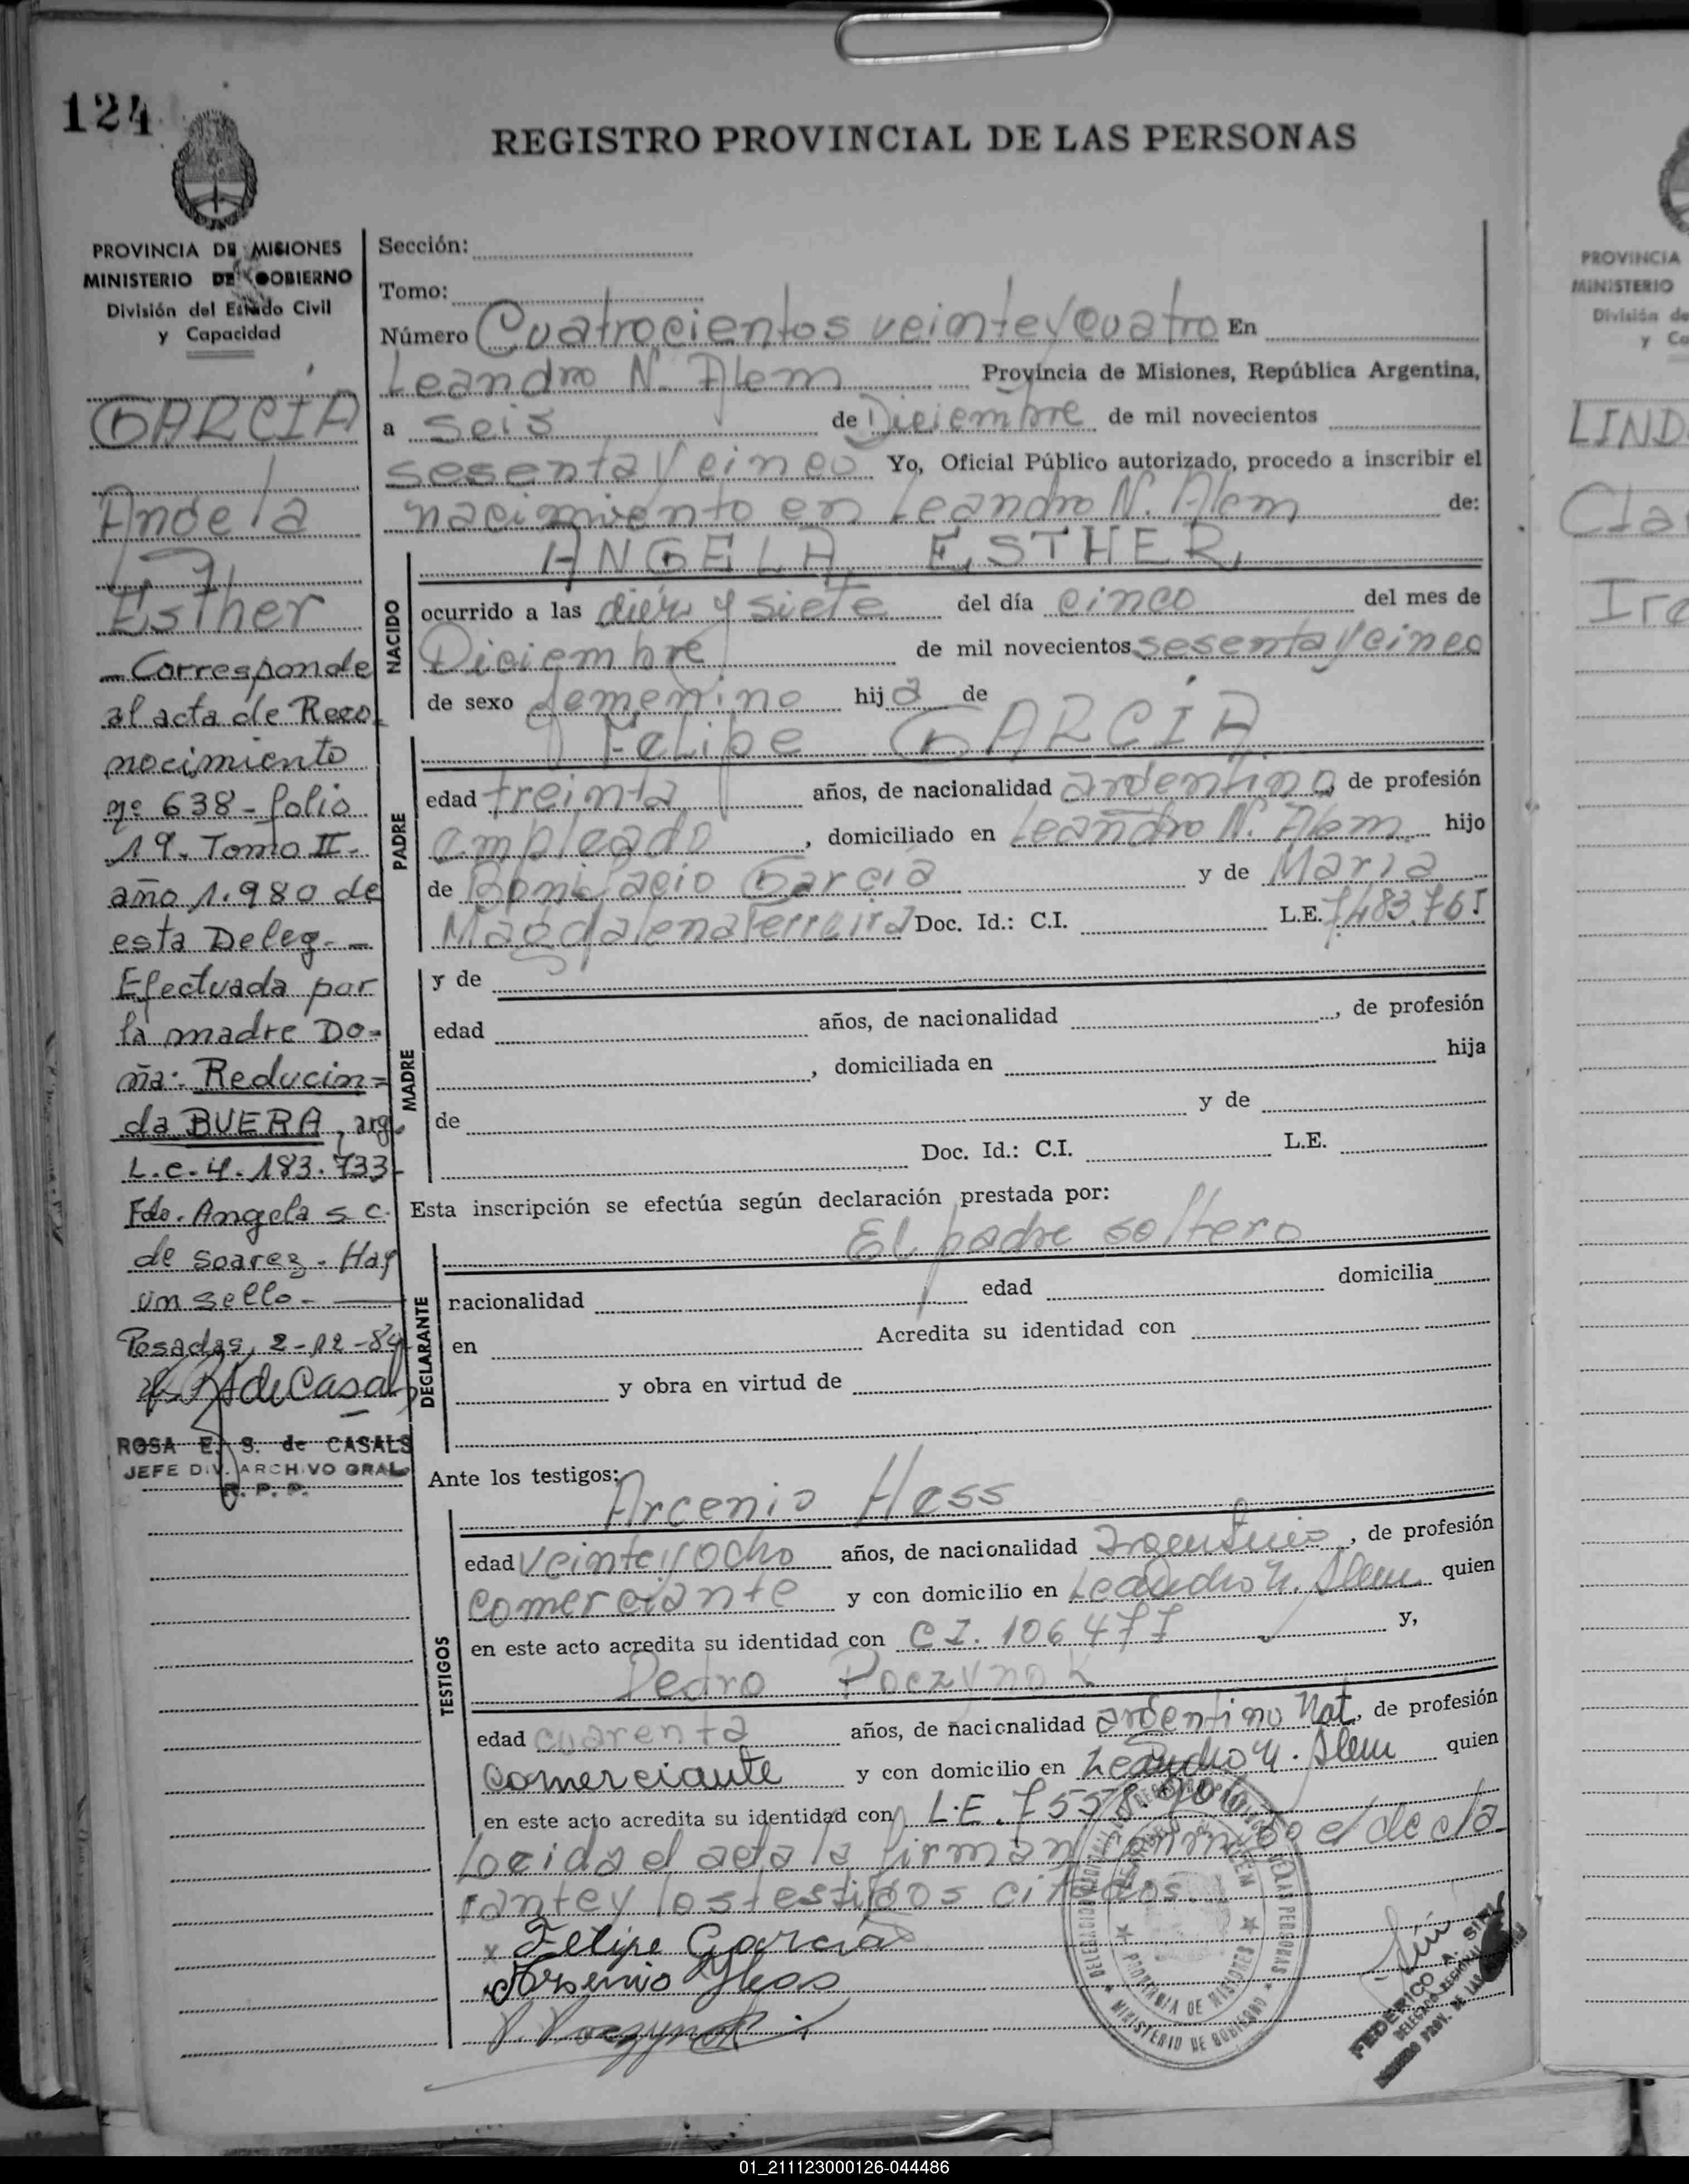 124
REGISTRO PROVINCIAL DE LAS PERSONAS
PROVINCIA DE MISIONES
MINISTERIO DE GOBIERNO
División del Estado Civil
y Capacidad
GARCÍA
Angela
Esther
— Corresponde
al acta de Reco
nocimiento
nº 638 - folio
19. Tomo II -
año 1.980 de
esta Deleg. —
Efectuada por
la madre Do-
ña: Reducin=
da BUERA, arg.
L.c. 4.183.733-
Fdo. Angela S C.
de Soarez - Hay
un sello - —
Posadas, 2-12-84
ROSA E. S. de CASALS
JEFE DIV. ARCHIVO GRAL
R. P. P.
Sección:
Tomo:
Número Cuatrocientos veinteycuatro En
Leandro N. Alem Provincia de Misiones, República Argentina,
a seis de Diciembre de mil novecientos
sesenta y cinco Yo, Oficial Público autorizado, procedo a inscribir el
nacimiento en Leandro N. Alem de:
ANGELA ESTHER,
NACIDO
ocurrido a las diez y siete del día cinco del mes de
Diciembre de mil novecientos sesenta y cinco
de sexo femenino hija de
Felipe GARCÍA
PADRE
edad treinta años, de nacionalidad argentino, de profesión
empleado, domiciliado en Leandro N. Alem hijo
de Bonifacio García y de María
Magdalena Ferreira Doc. Id.: C.I. L.E. 7483.765
MADRE
y de
edad años, de nacionalidad , de profesión
, domiciliada en hija
de y de
Doc. Id.: C.I. L.E.
Esta inscripción se efectúa según declaración prestada por:
El padre soltero
DECLARANTE
nacionalidad edad domicilia
en Acredita su identidad con
y obra en virtud de
Ante los testigos:
Arcenio Hess
TESTIGOS
edad veinteyocho años, de nacionalidad argentino, de profesión
comerciante y con domicilio en Leandro N. Alem quien
en este acto acredita su identidad con C I. 106.477 y,
Pedro Poczynok
edad cuarenta años, de nacionalidad argentino Nat, de profesión
comerciante y con domicilio en Leandro N. Alem quien
en este acto acredita su identidad con L.E. 7558.906
Locida el acta la firman conmigo el decla
rante y los testigos citados.
x Felipe García
Arsenio Hess
P. Poczynok
MINISTERIO DE GOBIERNO
PROVINCIA DE MISIONES
FEDERICO A.
DELEGADO REGIONAL
PROV. DE LAS
PROVINCIA
MINISTERIO
División de
y Ca
LIND
Cla
Ire
01_211123000126-044486